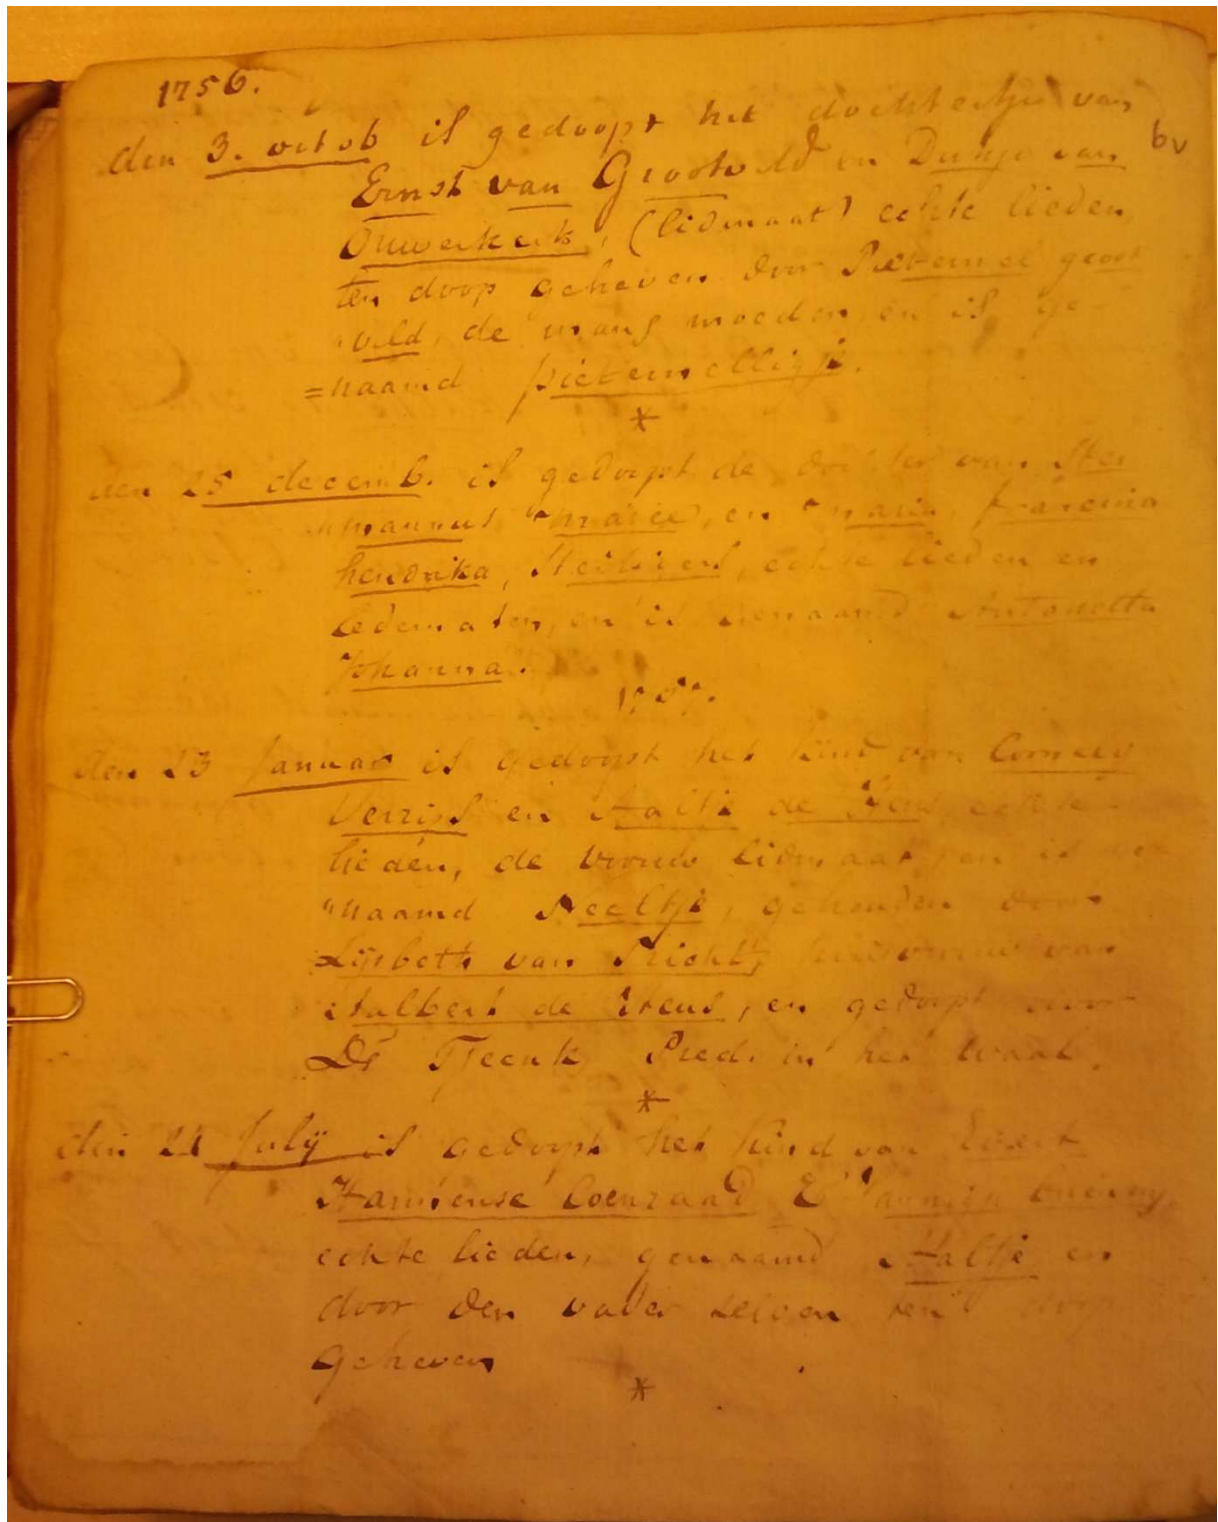 1756.
6v
den 3. octob is gedoopt het dochtertje van
Ernst van Grootveld en Duntje van
Ouwerkerk, (lidmaat) echte lieden
ten doop geheven door Pieternel groot
veld, de mans moeder, en is ge-
=naamd pieternelligje.
*
den 25 decemb. is gedoopt de dochter van Her
mannus en maria francina
hendrika, echte lieden en
ledematen, en is genaamd Antonetta
Johanna.
1757.
den 23 Januar is gedoopt het kind van Cornelis
Verrips en Aaltje de echte
lieden, de vrouw lidmaat, en is ge
"naamd Neeltje, geheuden door
Lijsbeth van Tricht, huisvrouw van
de , en gedoopt door
Ds Tjeenk Pred. in het waal.
*
den 21 Julij is gedoopt het kind van Evert
Coenraad E
echte lieden, genaamd Aaltje en
door den vader selven ten doop
geheven
*